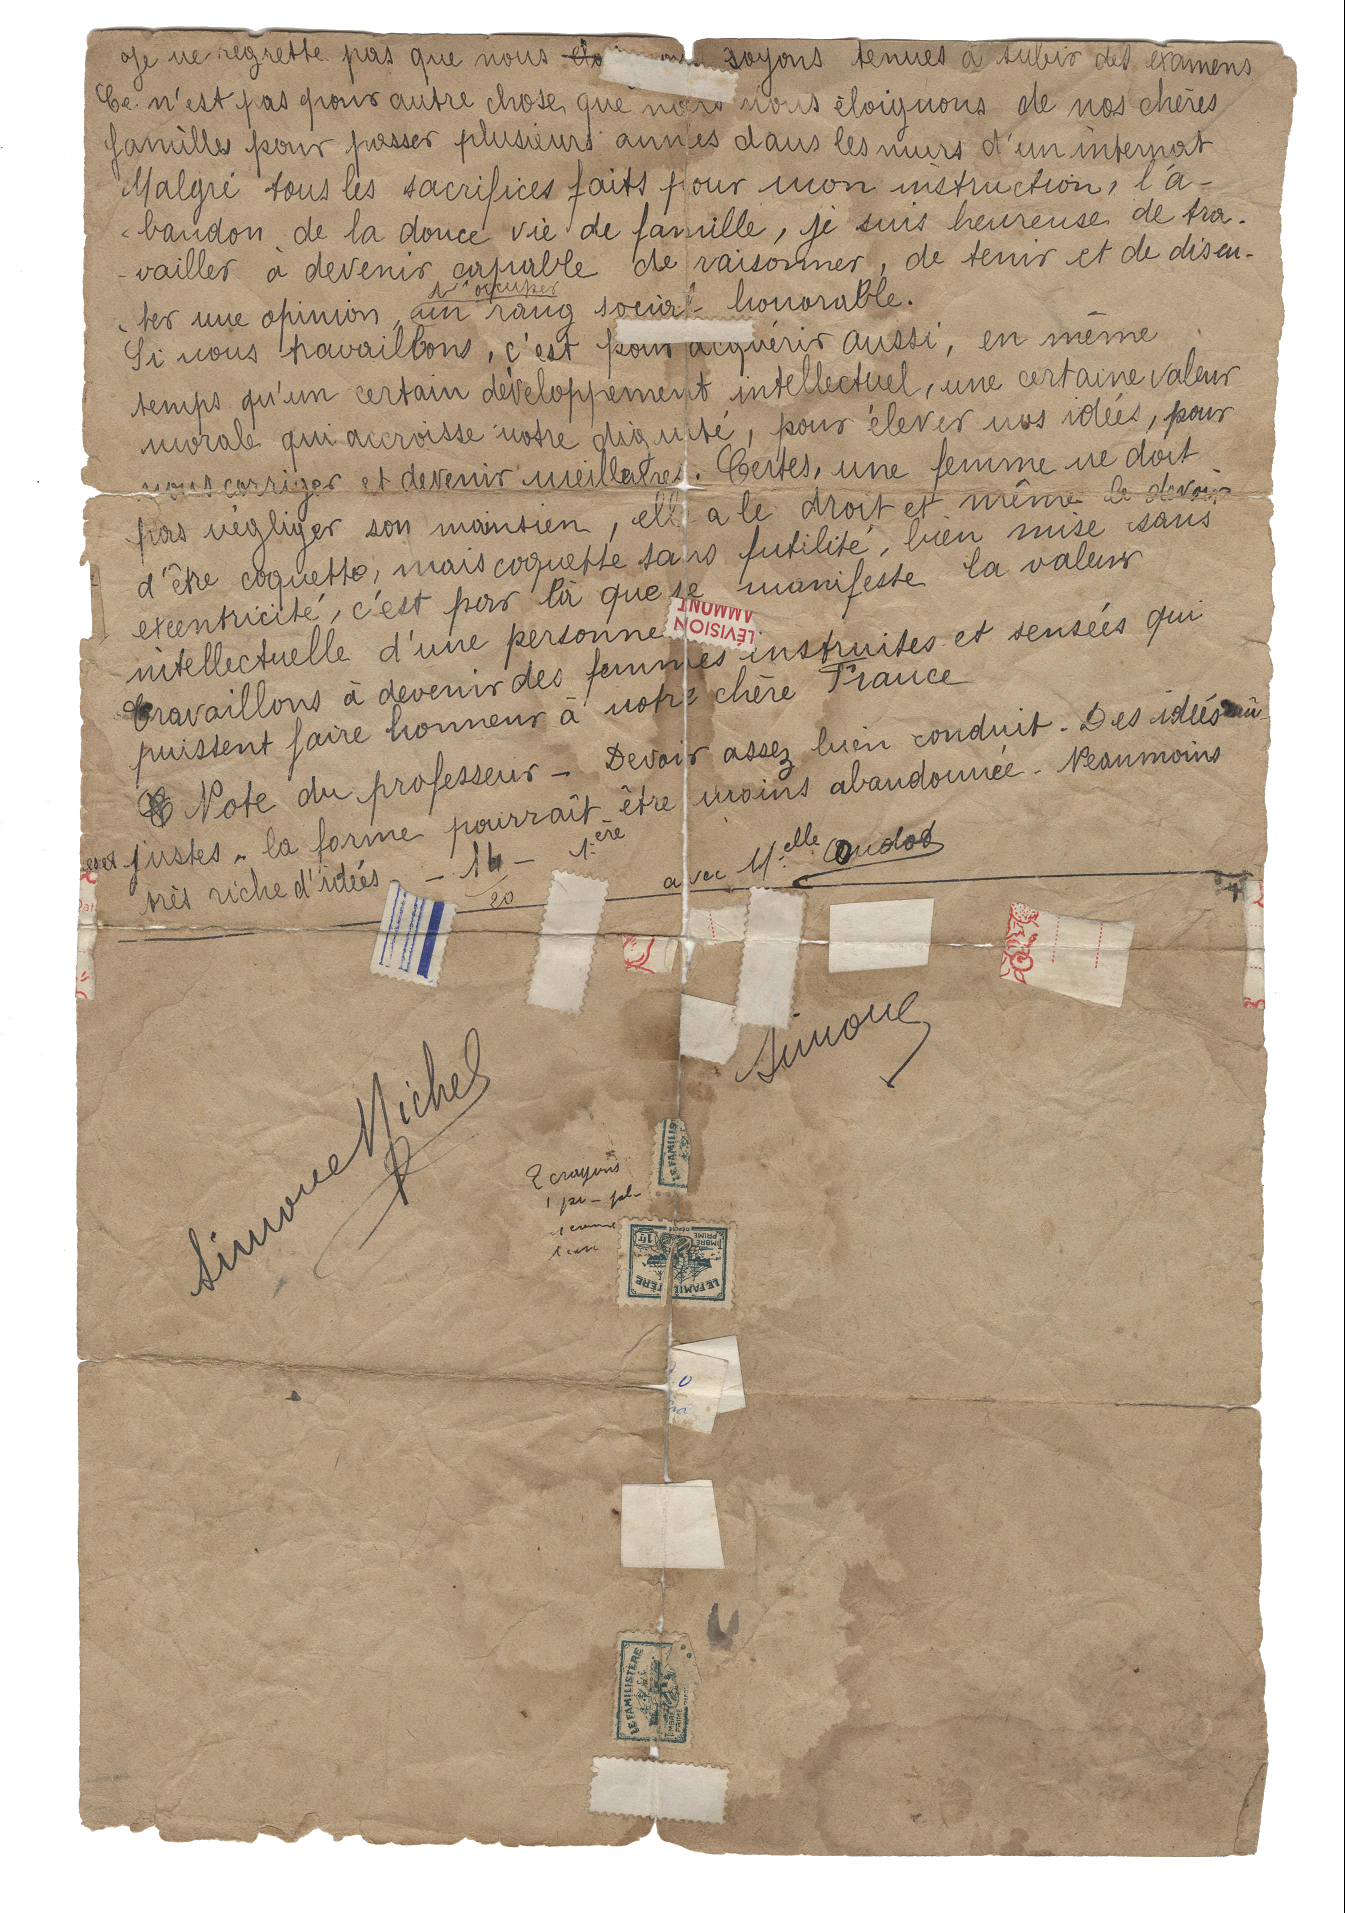 Je ne regrette pas que nous soyons tenues à subir des examens
Ce n'est pas pour autre chose que nous nous éloignons de nos chères
familles pour passer plusieurs années dans les murs d'un internat
Malgré tous les sacrifices faits pour mon instruction, l'a-
bandon de la douce vie de famille, je suis heureuse de tra-
vailler à devenir capable de raisonner, de tenir et de discu-
d'occuper
ter une opinion, un rang social honorable.
Si nous travaillons, c'est pour acquérir aussi, en même
temps qu'un certain développement intellectuel, une certaine valeur
morale qui accroisse notre dignité, pour élever nos idées, pour
nous corriger et devenir meilleures. Certes, une femme ne doit
pas négliger son maintien, elle a le droit et même le devoir
d'être coquette, mais coquette sans futilité, bien mise sans
excentricité, c'est par là que se manifeste la valeur
intellectuelle d'une personne
LÉVISION
AMMONT
Travaillons à devenir des femmes instruites et sensées qui
puissent faire honneur à notre chère France
Note du professeur - Devoir assez bien conduit. Des idées
justes. la forme pourrait être moins abandonnée. Néanmoins
très riche d'idées - 14 - 1ère
20
avec Melle Oudot
Simone
Simone Michel
2 crayons
LE FAMILIS
1fr
TIMBRE PRIME
LE FAMILISTÈRE
LE FAMILISTÈRE
TIMBRE PRIME